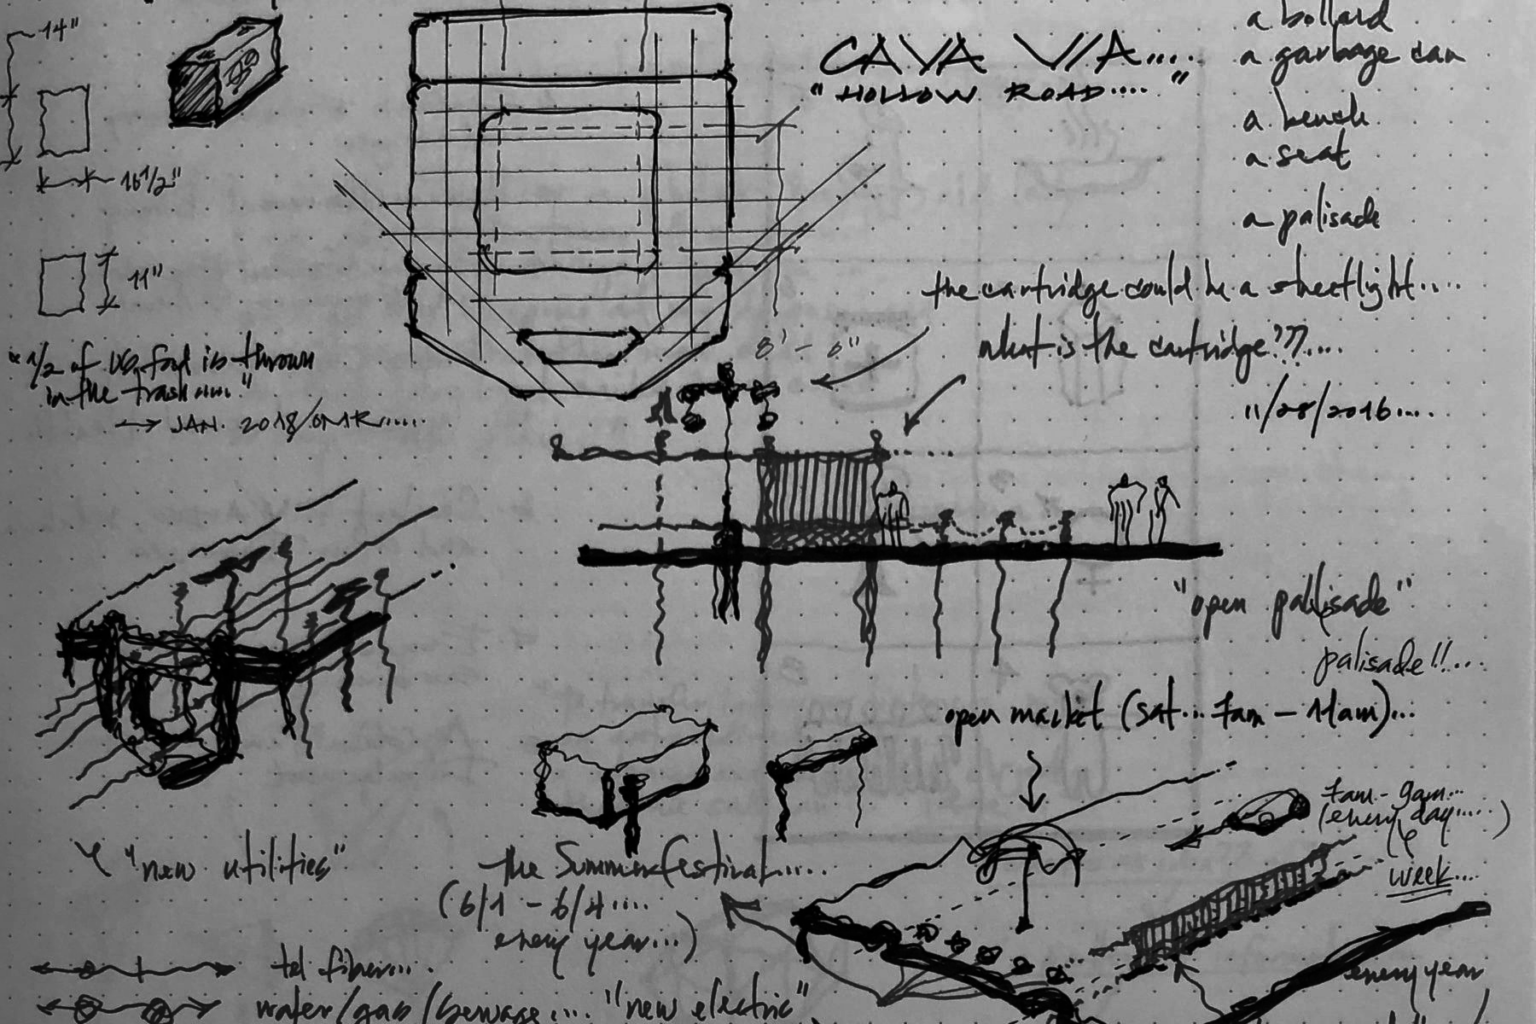 14"
16 1/2"
11"
"1/2 of US food is thrown
in the trash ...."
→ JAN. 2018/OMR.....
CAVA VIA....
"HOLLOW ROAD...."
a bollard
a garbage can
a bench
a seat
a palisade
the cartridge could be a streetlight....
what is the cartridge???....
11/28/2016....
8'-6"
"open palisade"
palisade!!...
open market (sat... 7am - 11am)...
7am - 9am...
(every day.....)
week....
"new utilities"
the Summer Festival.....
(6/1 - 6/4....
every year...)
tel fiber....
water/gas/sewage.... "new electric"
every year